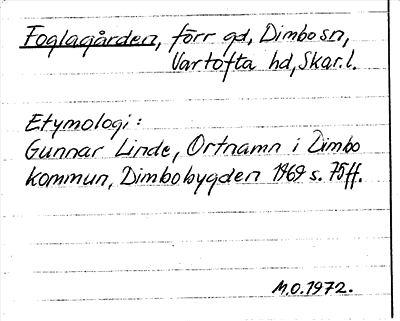 Foglagården, förr gd, Dimbo sn,
Vartofta hd, Skar.l.
Etymologi:
Gunnar Linde, Ortnamn i Dimbo
kommun, Dimbobygden 1969 s. 75ff.
M.O. 1972.